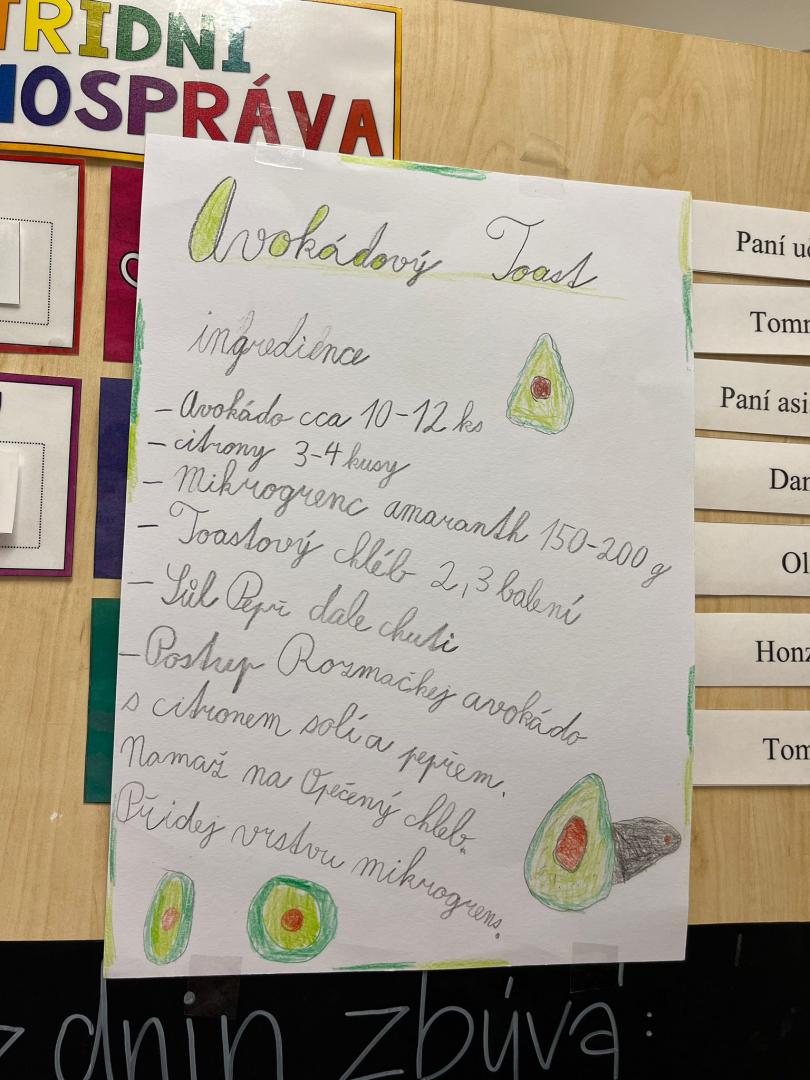 TŘÍDNÍ
MOSPRÁVA
Avokádový Toast
ingredience
- Avokádo cca 10-12 ks
- citrony 3-4 kusy
- Mikrogrenc amaranth 150-200 g
- Toastový chléb 2,3 balení
- Sůl Pepř dale chuti
- Postup Rozmačkej avokádo
s citronem solí a pepřem.
Namaž na Opečený chleb.
Přidej vrstvu mikrogrens.
Paní uč
Tomm
Paní asi
Dan
Ol
Honz
Tom
dnin zbývá: